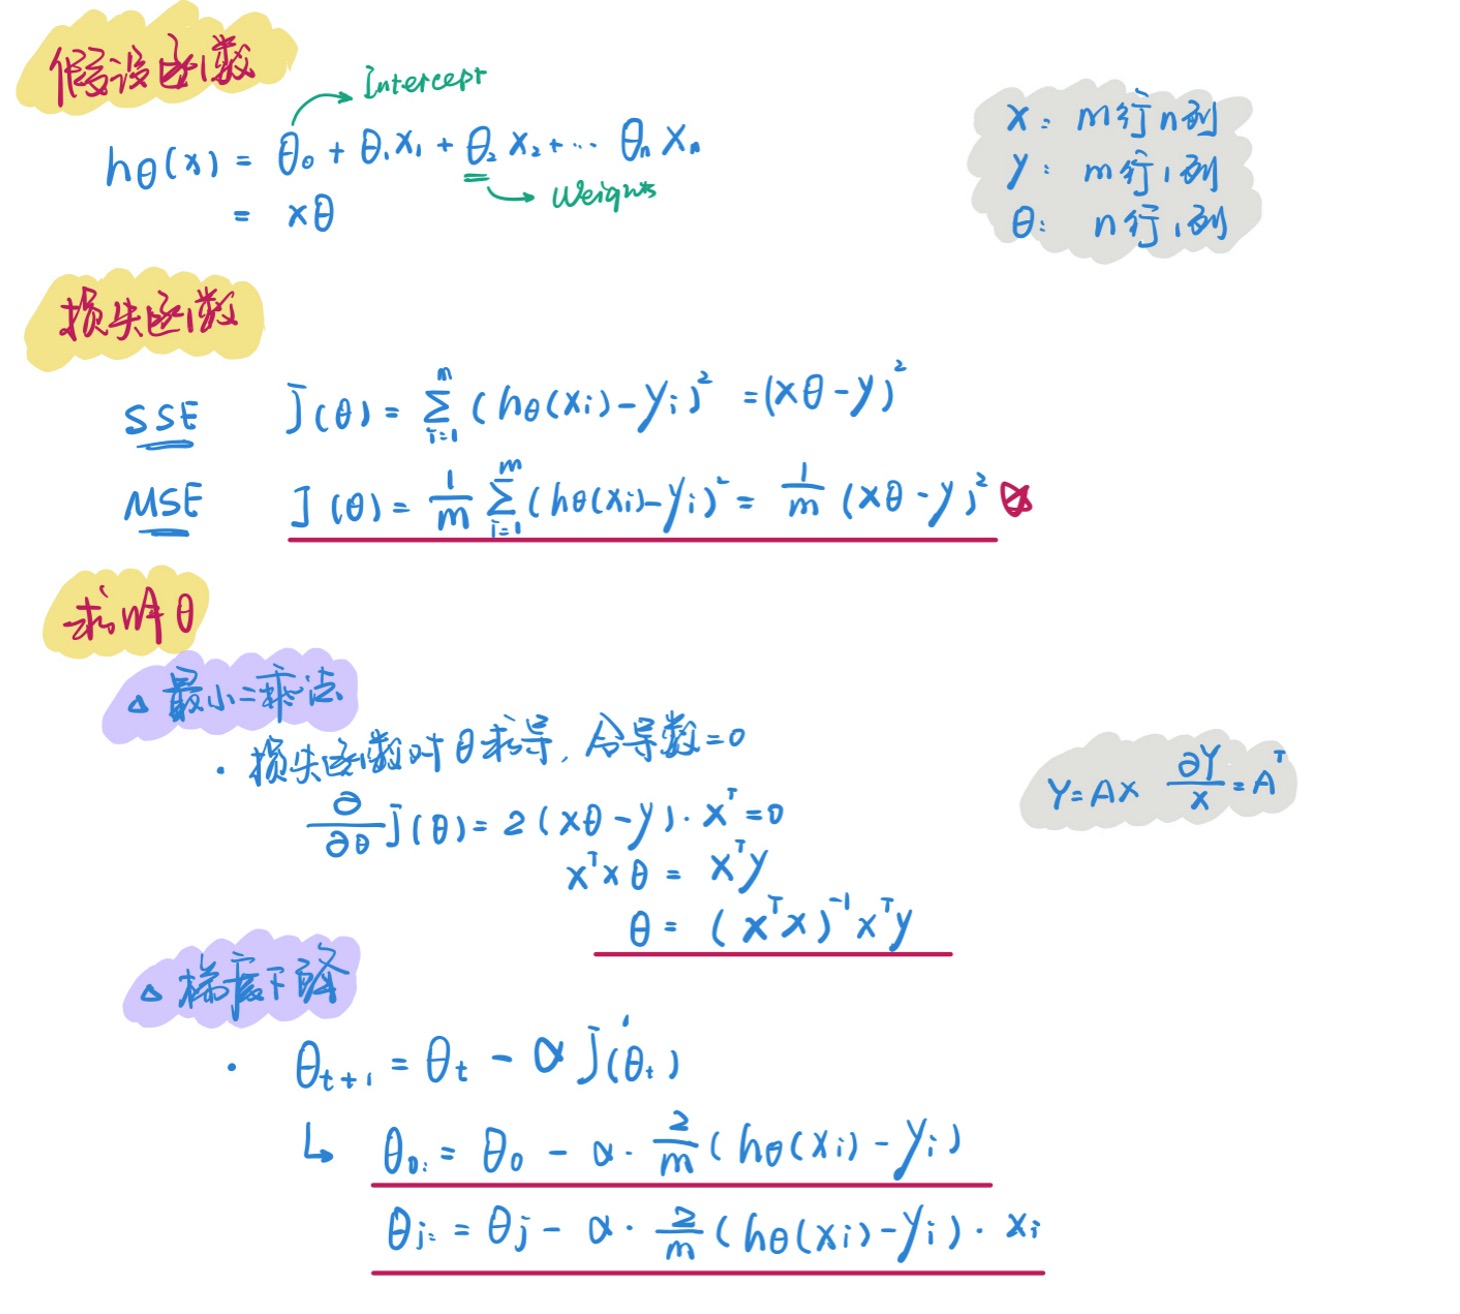 假设函数
Intercept
hθ(x) = θ₀ + θ₁x₁ + θ₂x₂ + ... θₙxₙ
Weights
= xθ
x: m行n列
y: m行1列
θ: n行1列
损失函数
SSE J(θ) = ∑ᵢ₌₁ᵐ (hθ(xᵢ) - yᵢ)² = (xθ - y)²
MSE J(θ) = 1/m ∑ᵢ₌₁ᵐ (hθ(xᵢ) - yᵢ)² = 1/m (xθ - y)²
求解θ
△ 最小二乘法
· 损失函数对θ求导, 令导数=0
∂/∂θ J(θ) = 2(xθ - y) · xᵀ = 0
xᵀxθ = xᵀy
θ = (xᵀx)⁻¹xᵀy
Y = Ax ∂Y/x = Aᵀ
△ 梯度下降
· θₜ₊₁ = θₜ - α J'(θₜ)
↳ θ₀: = θ₀ - α · 2/m (hθ(xᵢ) - yᵢ)
θⱼ: = θⱼ - α · 2/m (hθ(xᵢ) - yᵢ) · xᵢ